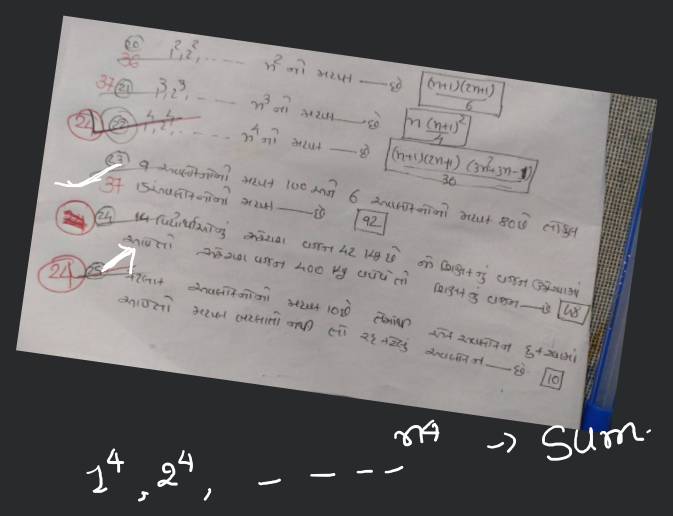 20 1², 2², ---- n² નો મધ્યક ___ છે (n+1)(2n+1)/6
36
37 21 1³, 2³, ---- n³ નો મધ્યક ___ છે n(n+1)²/4
22 1⁴, 2⁴, ---- n⁴ નો મધ્યક ___ છે (n+1)(2n+1)(3n²+3n-1)/30
23 9 અવલોકનોનો મધ્યક 100 અને 6 અવલોકનોનો મધ્યક 80 છે તો
37 15 અવલોકનોનો મધ્યક ___ છે 92
24 14 વિદ્યાર્થીઓનું સરેરાશ વજન 42 કિગ્રા છે જો શિક્ષકનું વજન ઉમેરવામાં
આવતો સરેરાશ વજન 400 ગ્રામ વધે તો શિક્ષકનું વજન ___ છે 48
24 25 અવલોકનોનો મધ્યક 10 છે તેમાંથી એક અવલોકન દુર કરવામાં
આવતો મધ્યક બદલાતો નથી તો રદ કરેલું અવલોકન ___ છે 10
1⁴, 2⁴, ---- n⁴ → Sum.